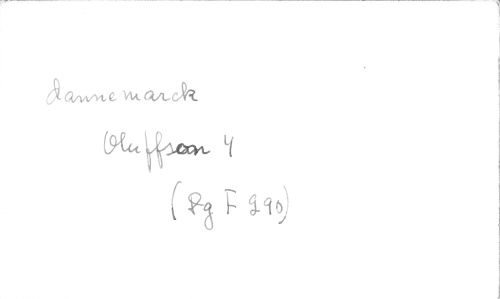 dannemarck
Oluffson 4
(Rg F 290)